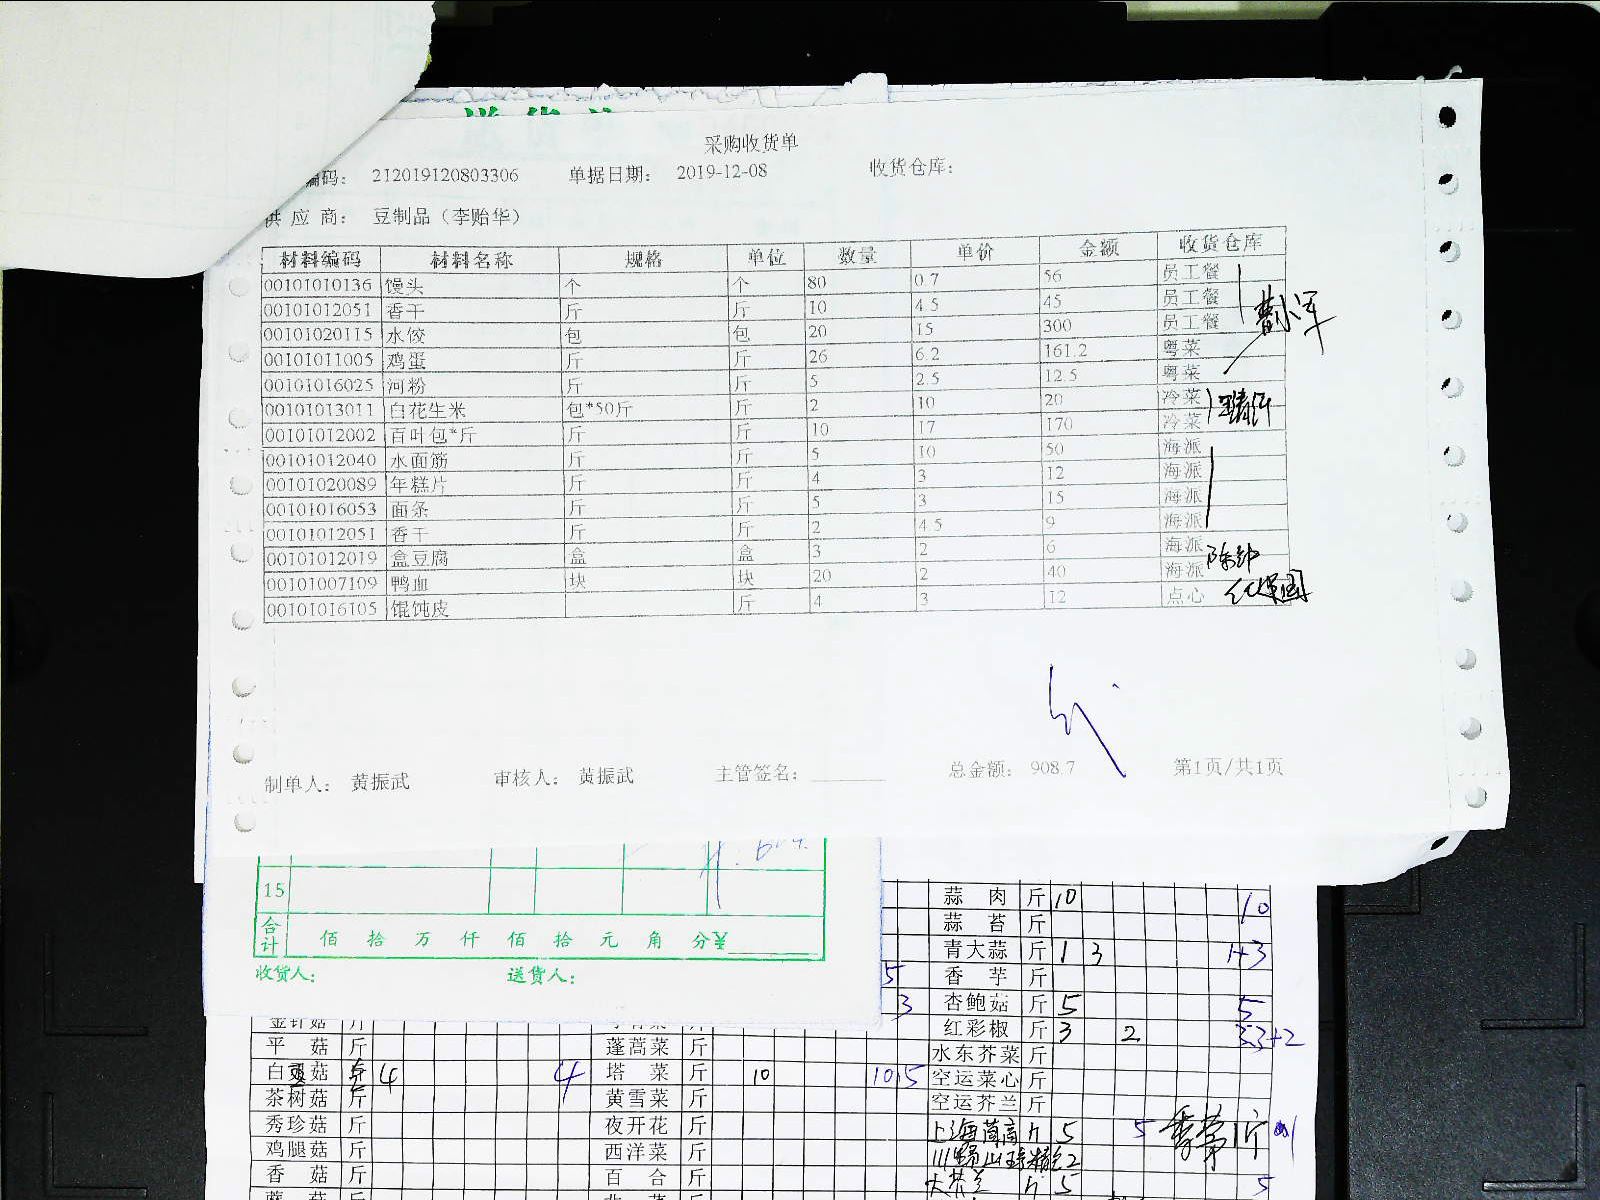 采购收货单
编码: 212019120803306 单据日期: 2019-12-08 收货仓库:
供 应 商: 豆制品（李贻华）
材料编码 材料名称 规格 单位 数量 单价 金额 收货仓库
00101010136 馒头 个 个 80 0.7 56 员工餐
00101012051 香干 斤 斤 10 4.5 45 员工餐
00101020115 水饺 包 包 20 15 300 员工餐
00101011005 鸡蛋 斤 斤 26 6.2 161.2 粤菜
00101016025 河粉 斤 斤 5 2.5 12.5 粤菜
00101013011 白花生米 包*50斤 斤 2 10 20 冷菜
00101012002 百叶包*斤 斤 斤 10 17 170 冷菜
00101012040 水面筋 斤 斤 5 10 50 海派
00101020089 年糕片 斤 斤 4 3 12 海派
00101016053 面条 斤 斤 5 3 15 海派
00101012051 香干 斤 斤 2 4.5 9 海派
00101012019 盒豆腐 盒 盒 3 2 6 海派
00101007109 鸭血 块 块 20 2 40 海派
00101016105 馄饨皮 斤 4 3 12 点心
制单人: 黄振武 审核人: 黄振武 主管签名: 总金额: 908.7 第1页/共1页
15
合计 佰 拾 万 仟 佰 拾 元 角 分¥
收货人: 送货人:
蒜 肉 斤 10 10
蒜 苔 斤
青大蒜 斤 1 3 1+3
香 芋 斤
杏鲍菇 斤 5 5
金针菇 斤 红彩椒 斤 3 2
平 菇 斤 蓬蒿菜 斤 水东芥菜 斤
白灵菇 斤 4 4 塔 菜 斤 10 空运菜心 斤
茶树菇 斤 黄雪菜 斤 空运芥兰 斤
秀珍菇 斤 夜开花 斤 5 5
鸡腿菇 斤 西洋菜 斤
香 菇 斤 百 合 斤 5 5